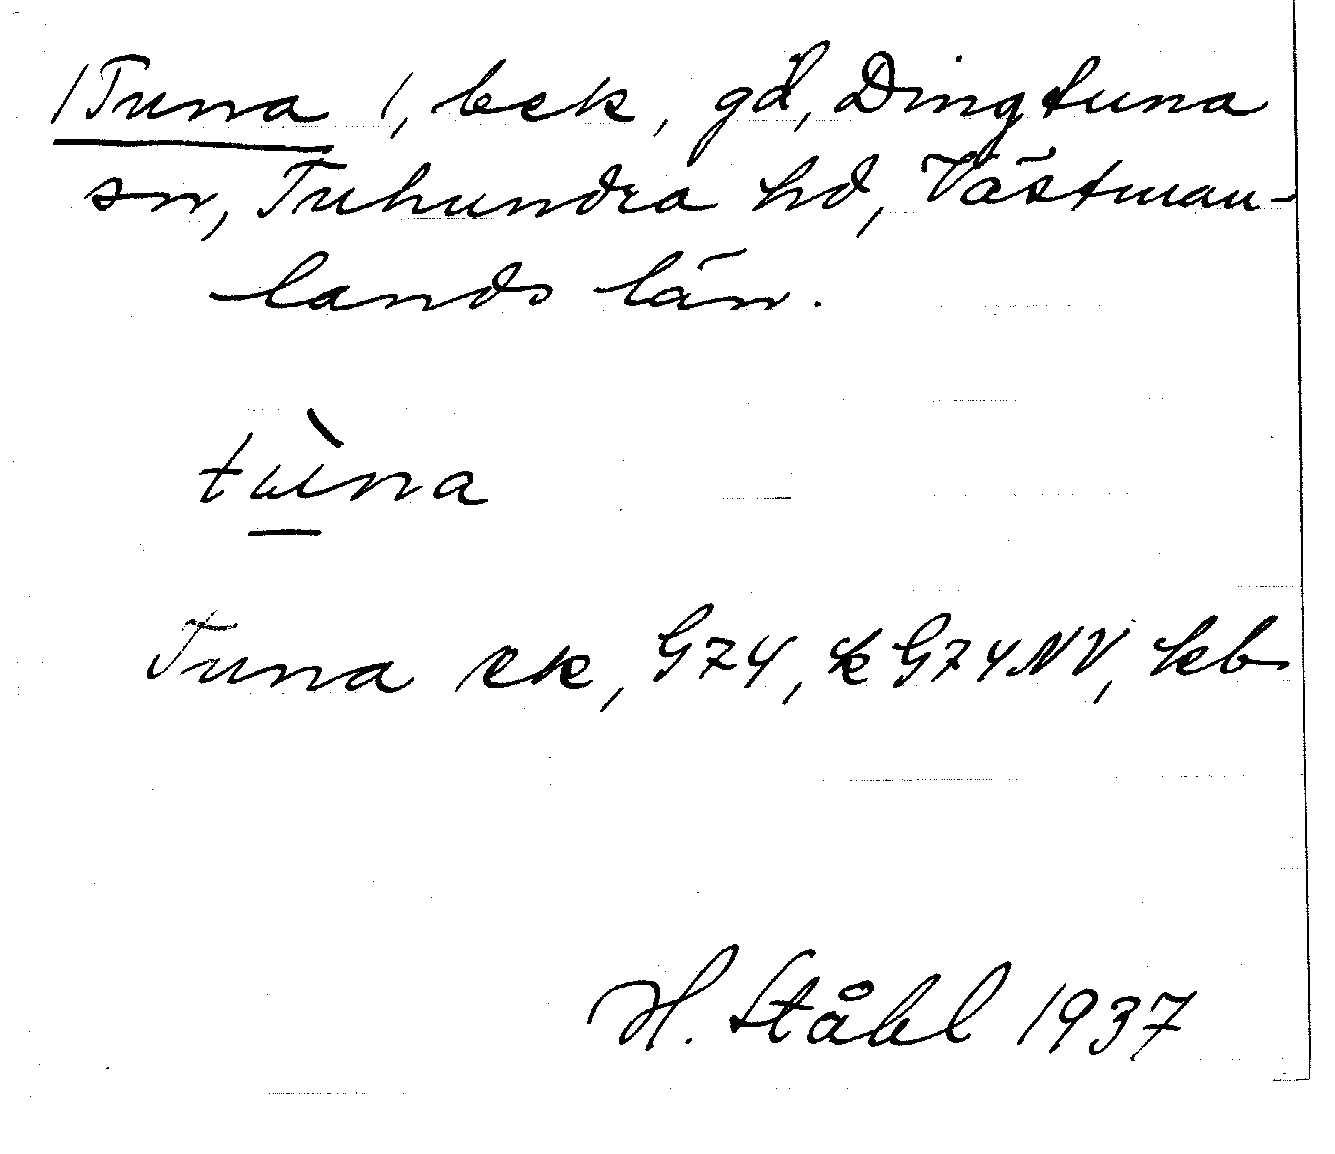 /Tuna /, bek, gd, Dingtuna
sn, Tuhundra hd, Västman-
lands län.
tùna
Tuna ek, G74, k G74NV, kb
H. Ståhl 1937